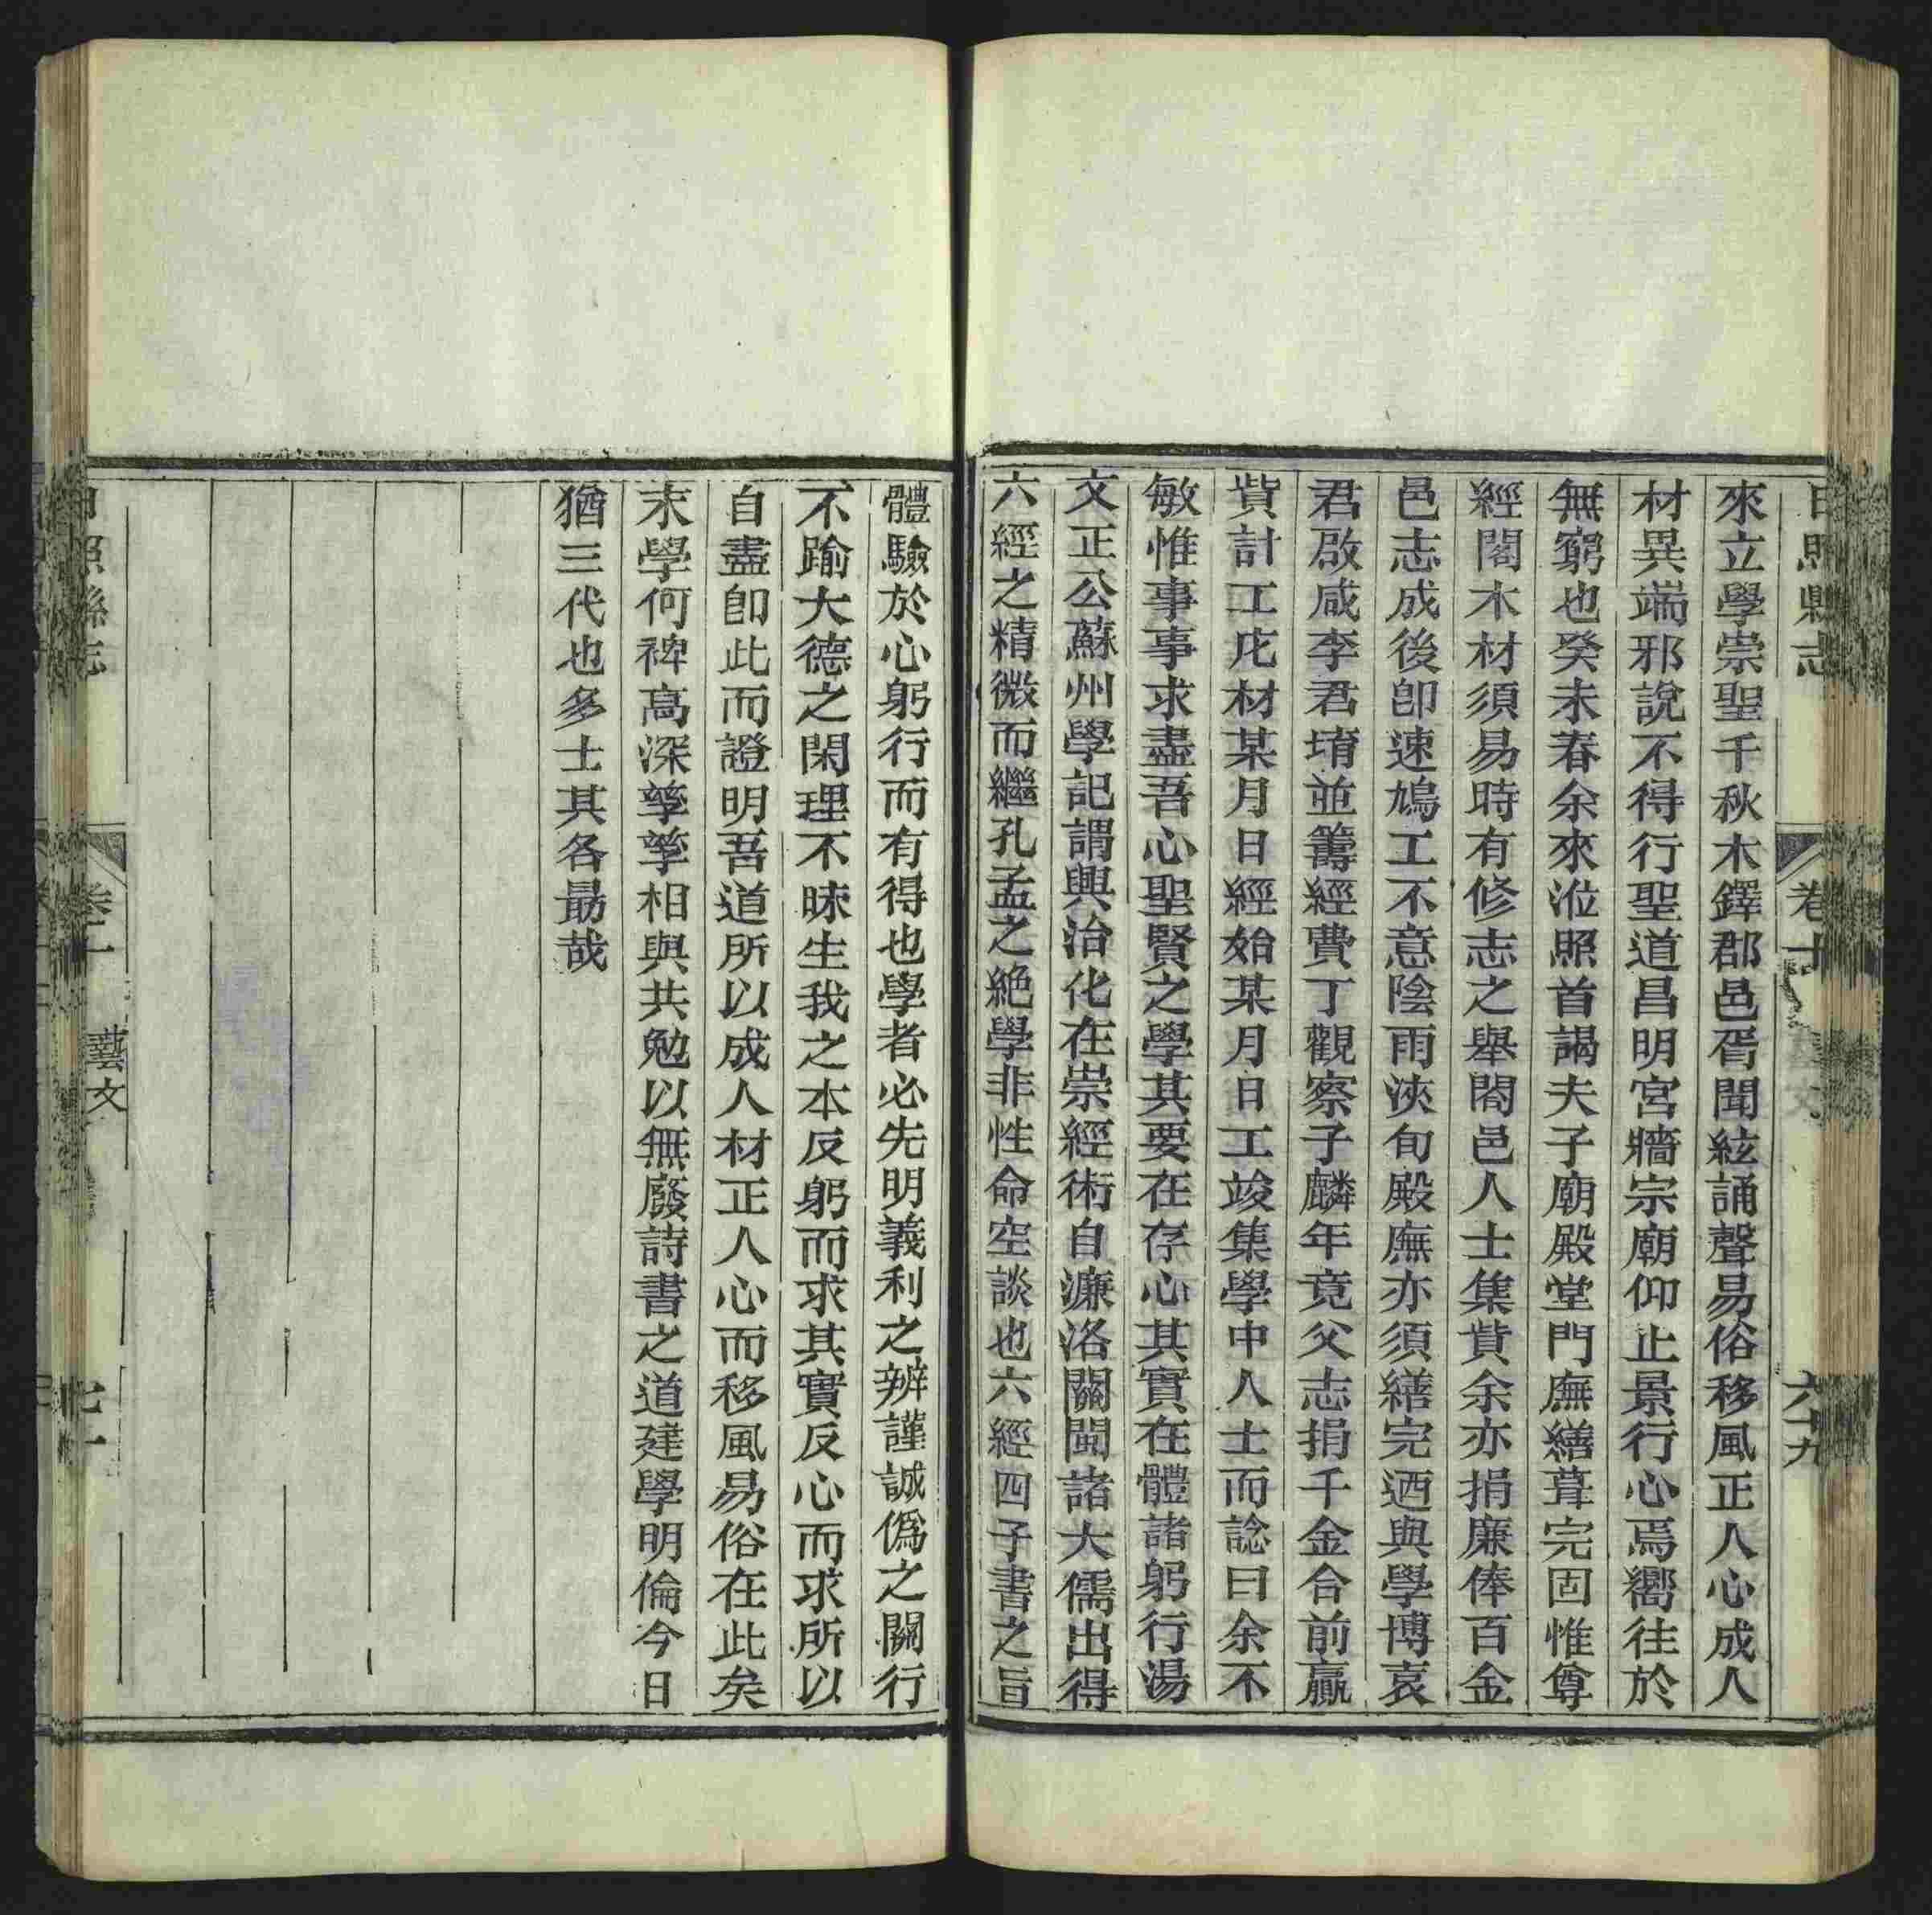 日照縣志 卷十 六十九
來立學崇聖千秋木鐸郡邑胥聞絃誦聲易俗移風正人心成人
材異端邪說不得行聖道昌明宮牆宗廟仰止景行心焉嚮往於
無窮也癸未春余來涖照首謁夫子廟殿堂門廡繕葺完固惟尊
經閣木材須易時有修志之舉閤邑人士集貲余亦捐廉俸百金
邑志成後卽速鳩工不意陰雨浹旬殿廡亦須繕完迺與學博袁
君啟咸李君堉並籌經費丁觀察子麟年竟父志捐千金合前贏
貲計工庀材某月日經始某月日工竣集學中人士而諗曰余不
敏惟事事求盡吾心聖賢之學其要在存心其實在體諸躬行湯
文正公蘇州學記謂興治化在崇經術自濂洛關閩諸大儒出得
六經之精微而繼孔孟之絶學非性命空談也六經四子書之旨
體驗於心躬行而有得也學者必先明義利之辨謹誠僞之關行
不踰大德之閑理不昧生我之本反躬而求其實反心而求所以
自盡卽此而證明吾道所以成人材正人心而移風易俗在此矣
末學何裨高深孳孳相與共勉以無廢詩書之道建學明倫今日
猶三代也多士其各勗哉
日照縣志 卷十 藝文 七十一